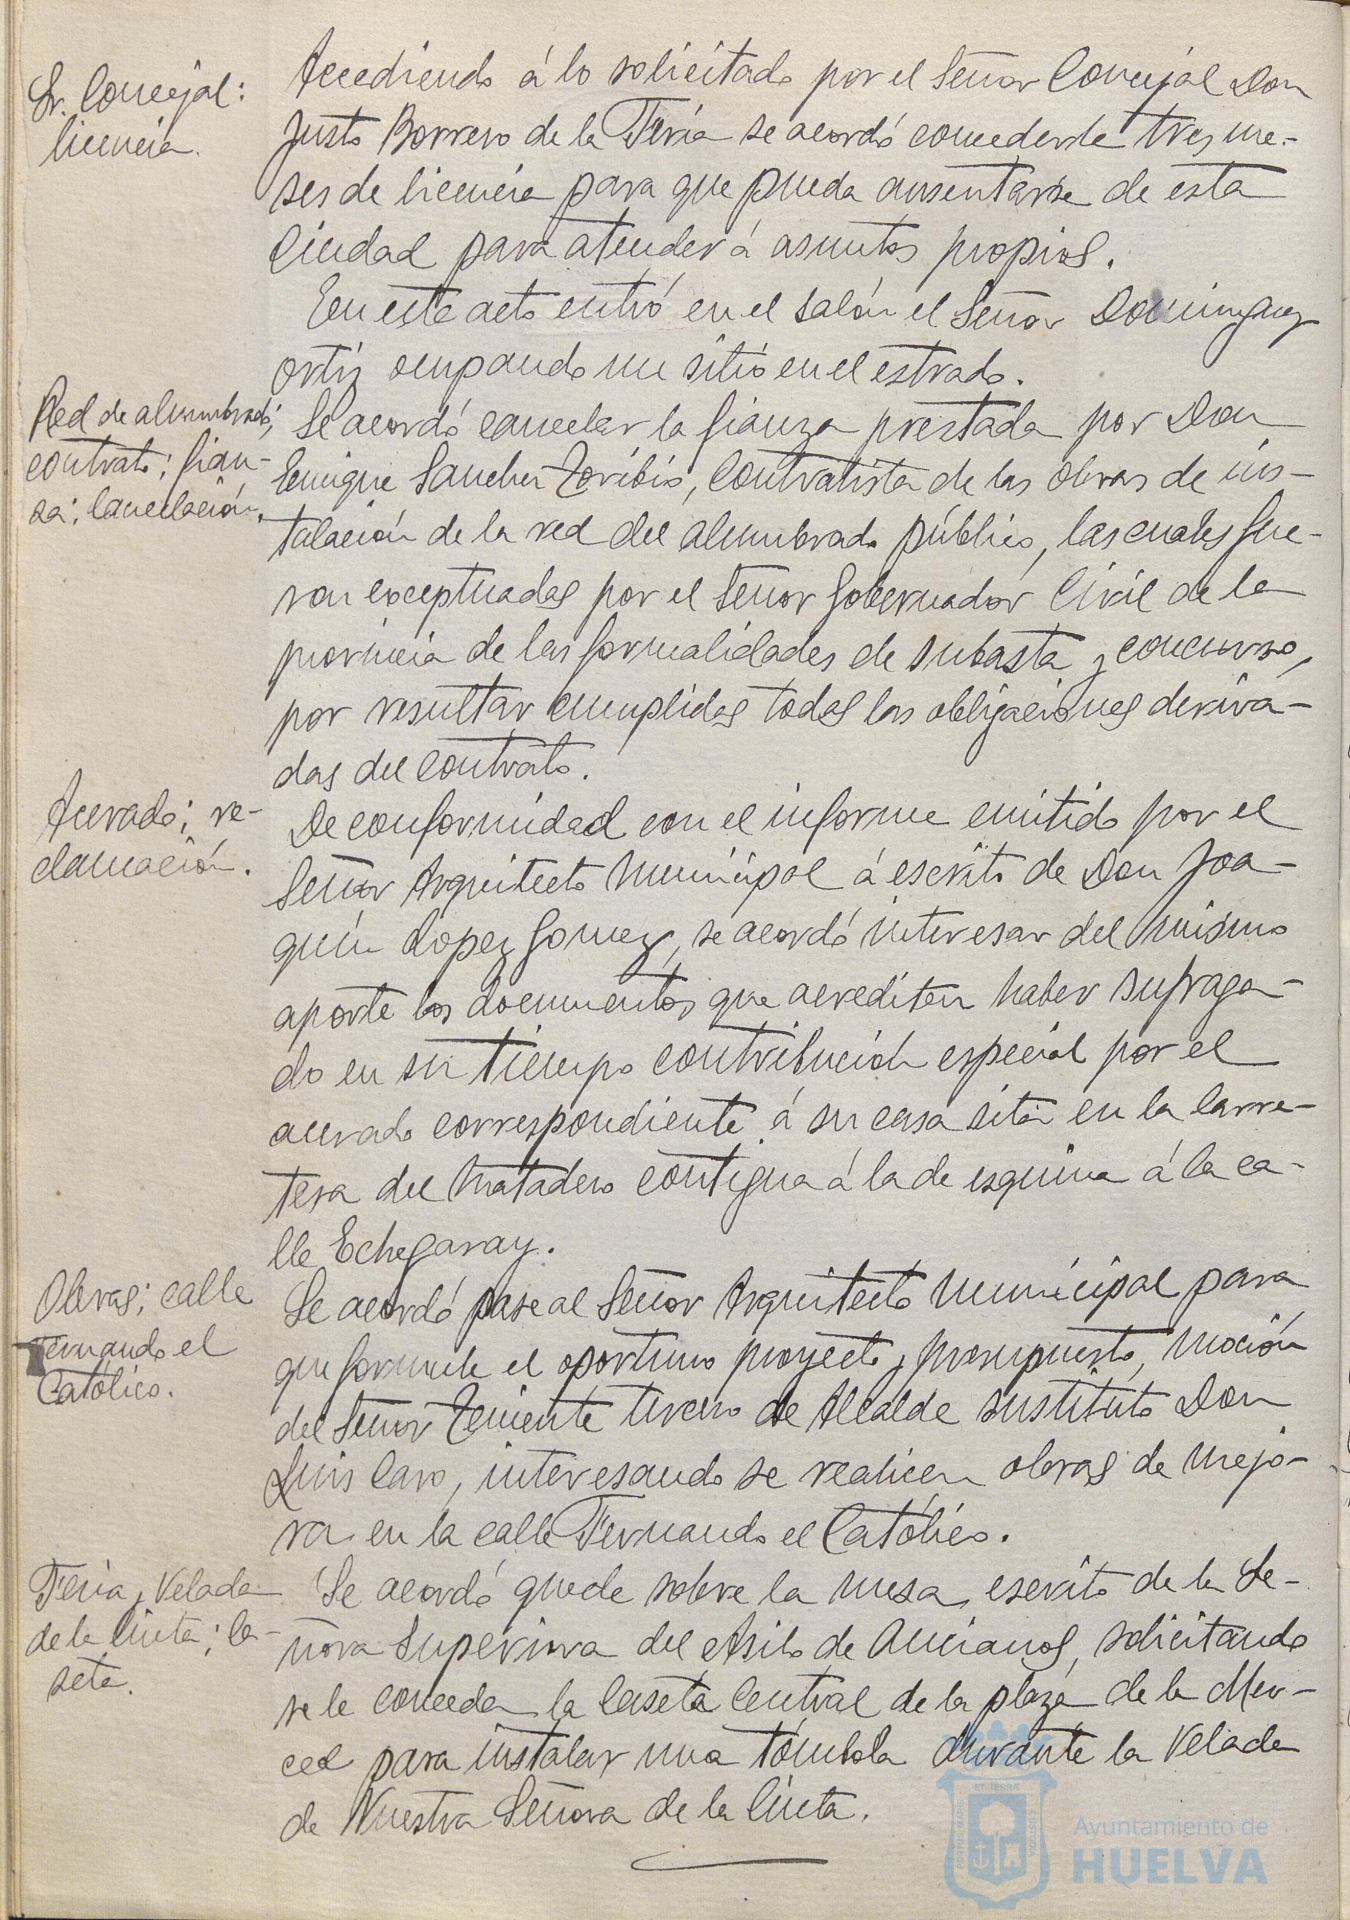 Sr. Concejal:
licencia.
Accediendo á lo solicitado por el Señor Concejal Don
Justo Borrero de la Feria se acordó concederle tres me-
ses de licencia para que pueda ausentarse de esta
Ciudad para atender á asuntos propios.
En este acto entró en el salón el Señor Dominguez
Ortiz ocupando un sitio en el estrado.
Red de alumbrado;
contrato; fian-
za; cancelación.
Se acordó cancelar la fianza prestada por Don
Enrique Sanchez Toribio, Contratista de las obras de ins-
talación de la red del alumbrado público, las cuales fue-
ron exceptuadas por el Señor Gobernador Civil de la
provincia de las formalidades de subasta y concurso,
por resultar cumplidas todas las obligaciones deriva-
das del contrato.
Acerado; re-
clamación.
De conformidad con el informe emitido por el
Señor Arquitecto Municipal á escrito de Don Joa-
quín Lopez Gomez, se acordó interesar del mismo
aporte los documentos que acrediten haber sufraga-
do en su tiempo contribución especial por el
acerado correspondiente á su casa sita en la Carre-
tera del Matadero contigua á la de esquina á la ca-
lle Echegaray.
Obras; calle
Fernando el
Católico.
Se acordó pase al Señor Arquitecto Municipal para
que formule el oportuno proyecto y presupuesto, moción
del Señor Teniente tercero de Alcalde sustituto Don
Luis Caro, interesando se realicen obras de mejo-
ra en la calle Fernando el Católico.
Feria y Velada
de la Cinta; Ca-
seta.
Se acordó quede sobre la mesa, escrito de la Se-
ñora Superiora del Asilo de Ancianos, solicitando
se le conceda la Caseta Central de la plaza de la Mer-
ced para instalar una tómbola durante la Velada
de Nuestra Señora de la Cinta.
Ayuntamiento de
HUELVA